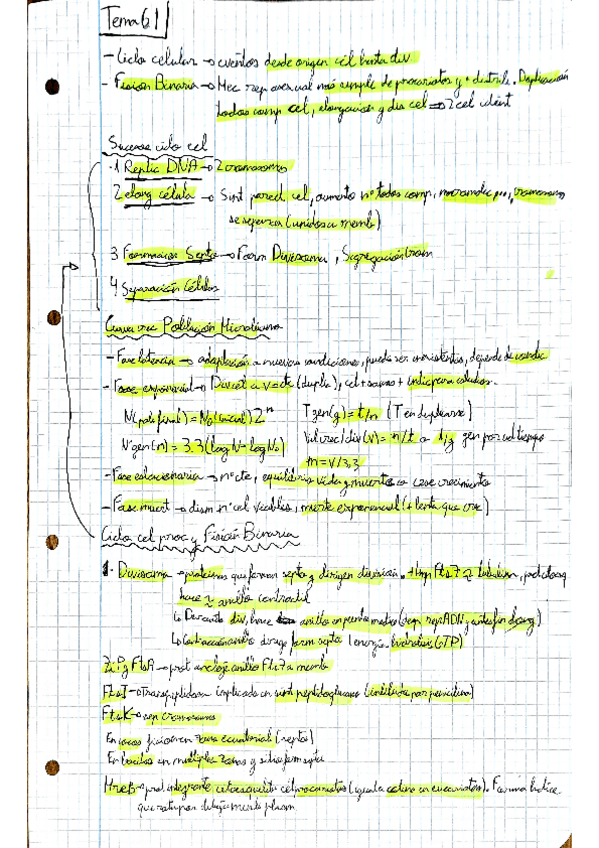 Tema 6.1
- Ciclo celular → eventos desde origen cél hasta div
- Fisión Binaria → Mec rep asexual más simple de procariotas y + distrib. Duplicación
todos comp cel, elongación y div cel ⇒ 2 cel idént
Sucesos ciclo cel
·1 Replic DNA → 2 cromosomas
2 elong célula → Sint pared cel, aumento nº todos comp,
se separan (unidos a memb)
3 Formación Septo → Form Divisoma, Segregación crom
4 Separación Células
Población Microbiana
- Fase latencia → adaptación a nuevas condiciones, puede ser inexistente, depende de condic
- Fase exponencial → Div cel a v=cte (duplic), cél + sanas +
N(pobl final) = N₀(inicial) 2ⁿ T gen(g) = t/n (T en duplicarse)
Nºgen(n) = 3.3 (log N - log N₀) Vel crec/div(v) = n/t o 1/g gen por ud tiempo
m = v/3,3
- Fase estacionaria → nº cte, equilibrio vida y muertes o cese crecimiento
- Fase muert → dism nº cel viables, muerte exponencial (+ lenta que crec)
Ciclo cel proc y Fisión Binaria
1- Divisoma → proteínas que forman septo y dirigen división. + Imp FtsZ ≈ tubulina,
hace ≈ anillo contráctil
↳ Durante div, hace anillo en punto medio
↳ Contracción anillo dirige form septo (energía hidrólisis GTP)
ZipA y FtsA → prot anclaje anillo FtsZ a memb
FtsI → transpeptidasa implicada en sint peptidoglucano (inhibida por penicilina)
FtsK → sep cromosomas
En cocos fisión en zona ecuatorial (septo)
En bacilos en múltiples zonas y sitio form septo
MreB → prot integrante citoesqueleto cél procariotas (igual a actina en eucariotas). Forma hélice